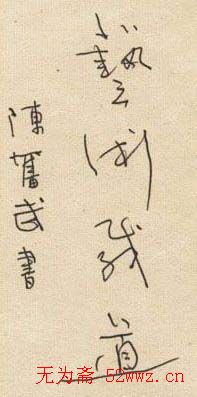 藝術載道
陳奮武書
无为斋 52wwz.cn